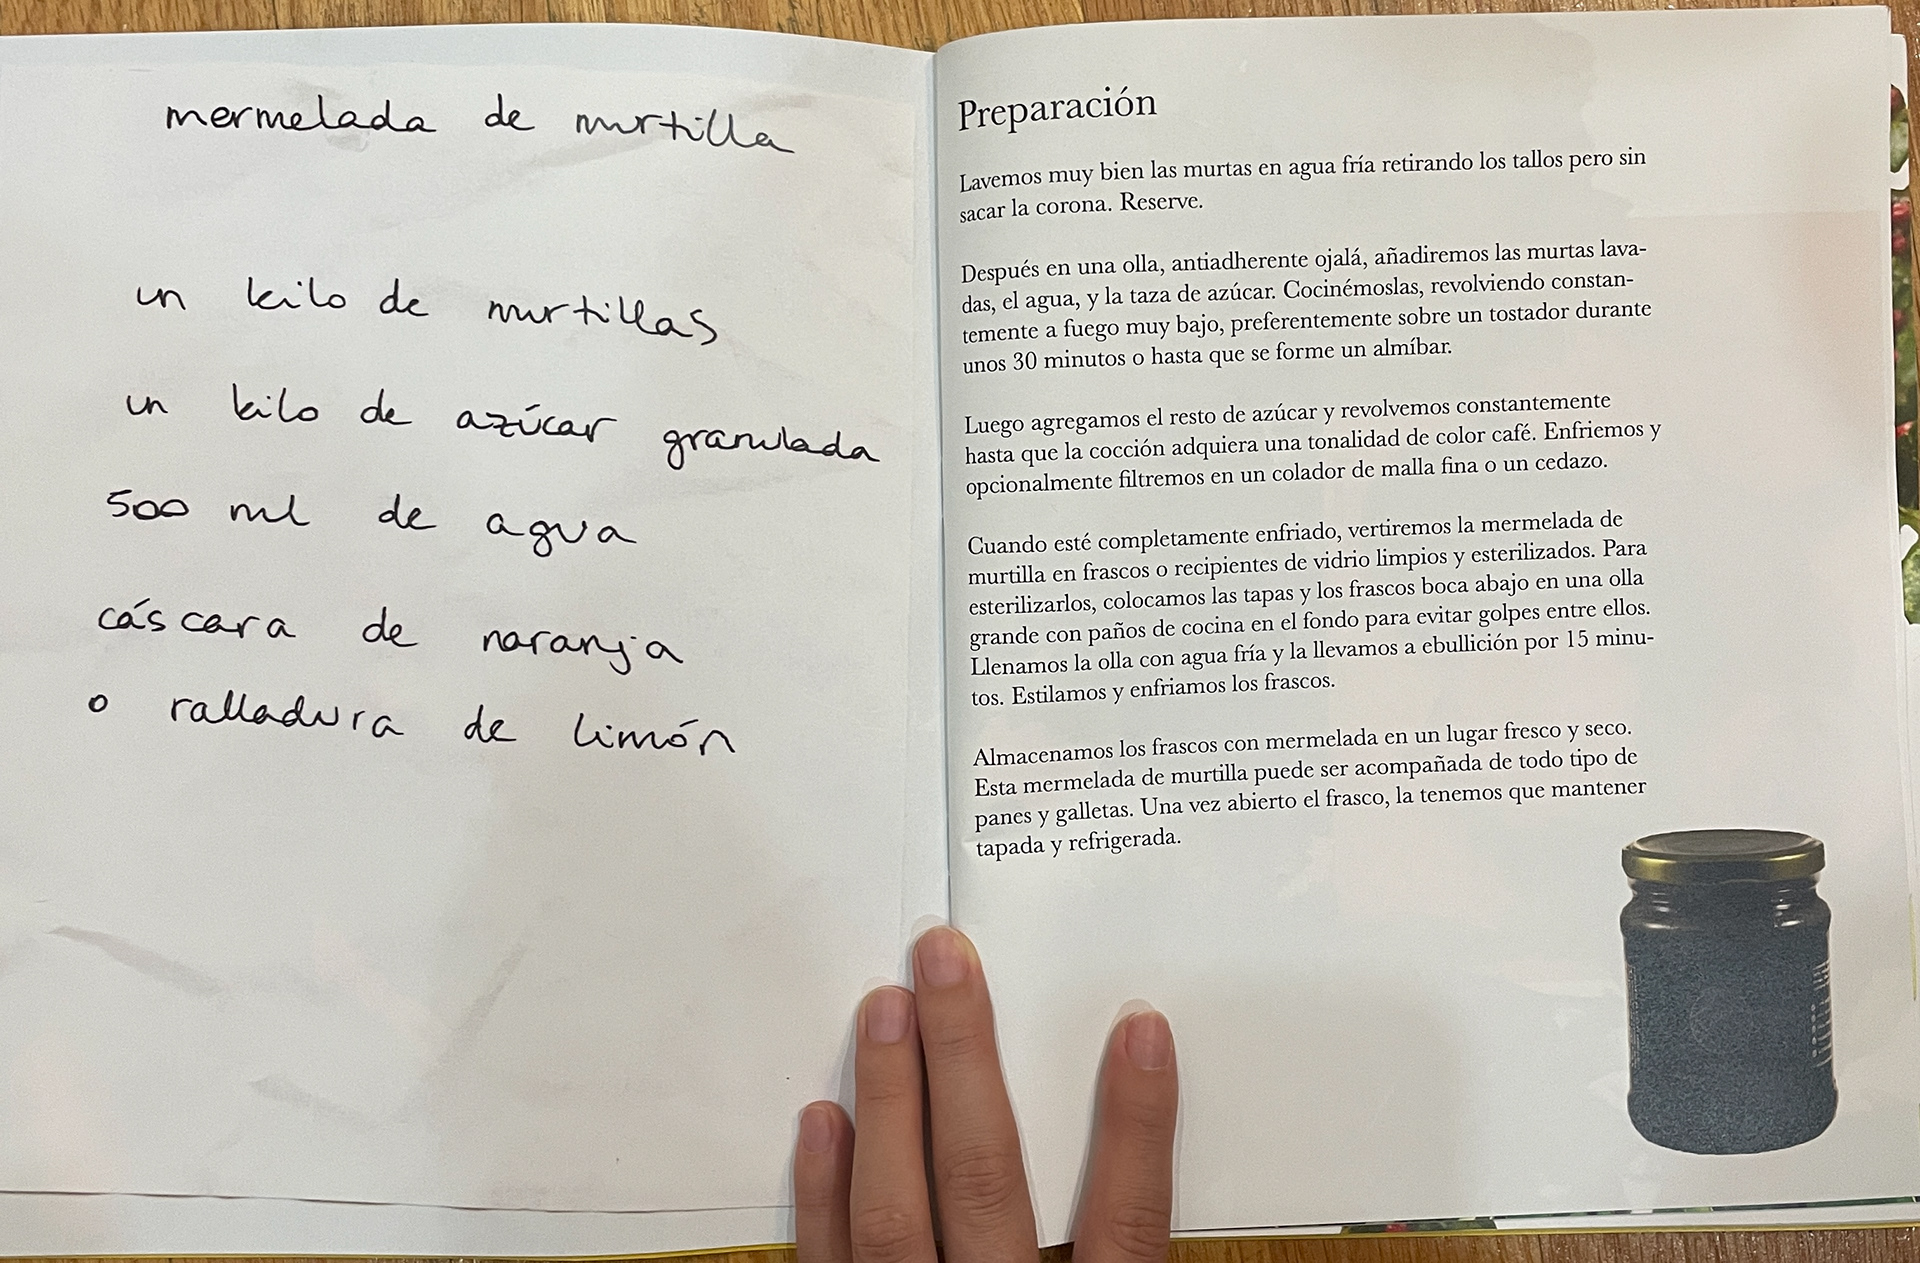 mermelada de murtilla
un kilo de murtillas
un kilo de azúcar granulada
500 ml de agua
cáscara de naranja
o ralladura de limón
Preparación
Lavemos muy bien las murtas en agua fría retirando los tallos pero sin
sacar la corona. Reserve.
Después en una olla, antiadherente ojalá, añadiremos las murtas lava-
das, el agua, y la taza de azúcar. Cocinémoslas, revolviendo constan-
temente a fuego muy bajo, preferentemente sobre un tostador durante
unos 30 minutos o hasta que se forme un almíbar.
Luego agregamos el resto de azúcar y revolvemos constantemente
hasta que la cocción adquiera una tonalidad de color café. Enfriemos y
opcionalmente filtremos en un colador de malla fina o un cedazo.
Cuando esté completamente enfriado, vertiremos la mermelada de
murtilla en frascos o recipientes de vidrio limpios y esterilizados. Para
esterilizarlos, colocamos las tapas y los frascos boca abajo en una olla
grande con paños de cocina en el fondo para evitar golpes entre ellos.
Llenamos la olla con agua fría y la llevamos a ebullición por 15 minu-
tos. Estilamos y enfriamos los frascos.
Almacenamos los frascos con mermelada en un lugar fresco y seco.
Esta mermelada de murtilla puede ser acompañada de todo tipo de
panes y galletas. Una vez abierto el frasco, la tenemos que mantener
tapada y refrigerada.